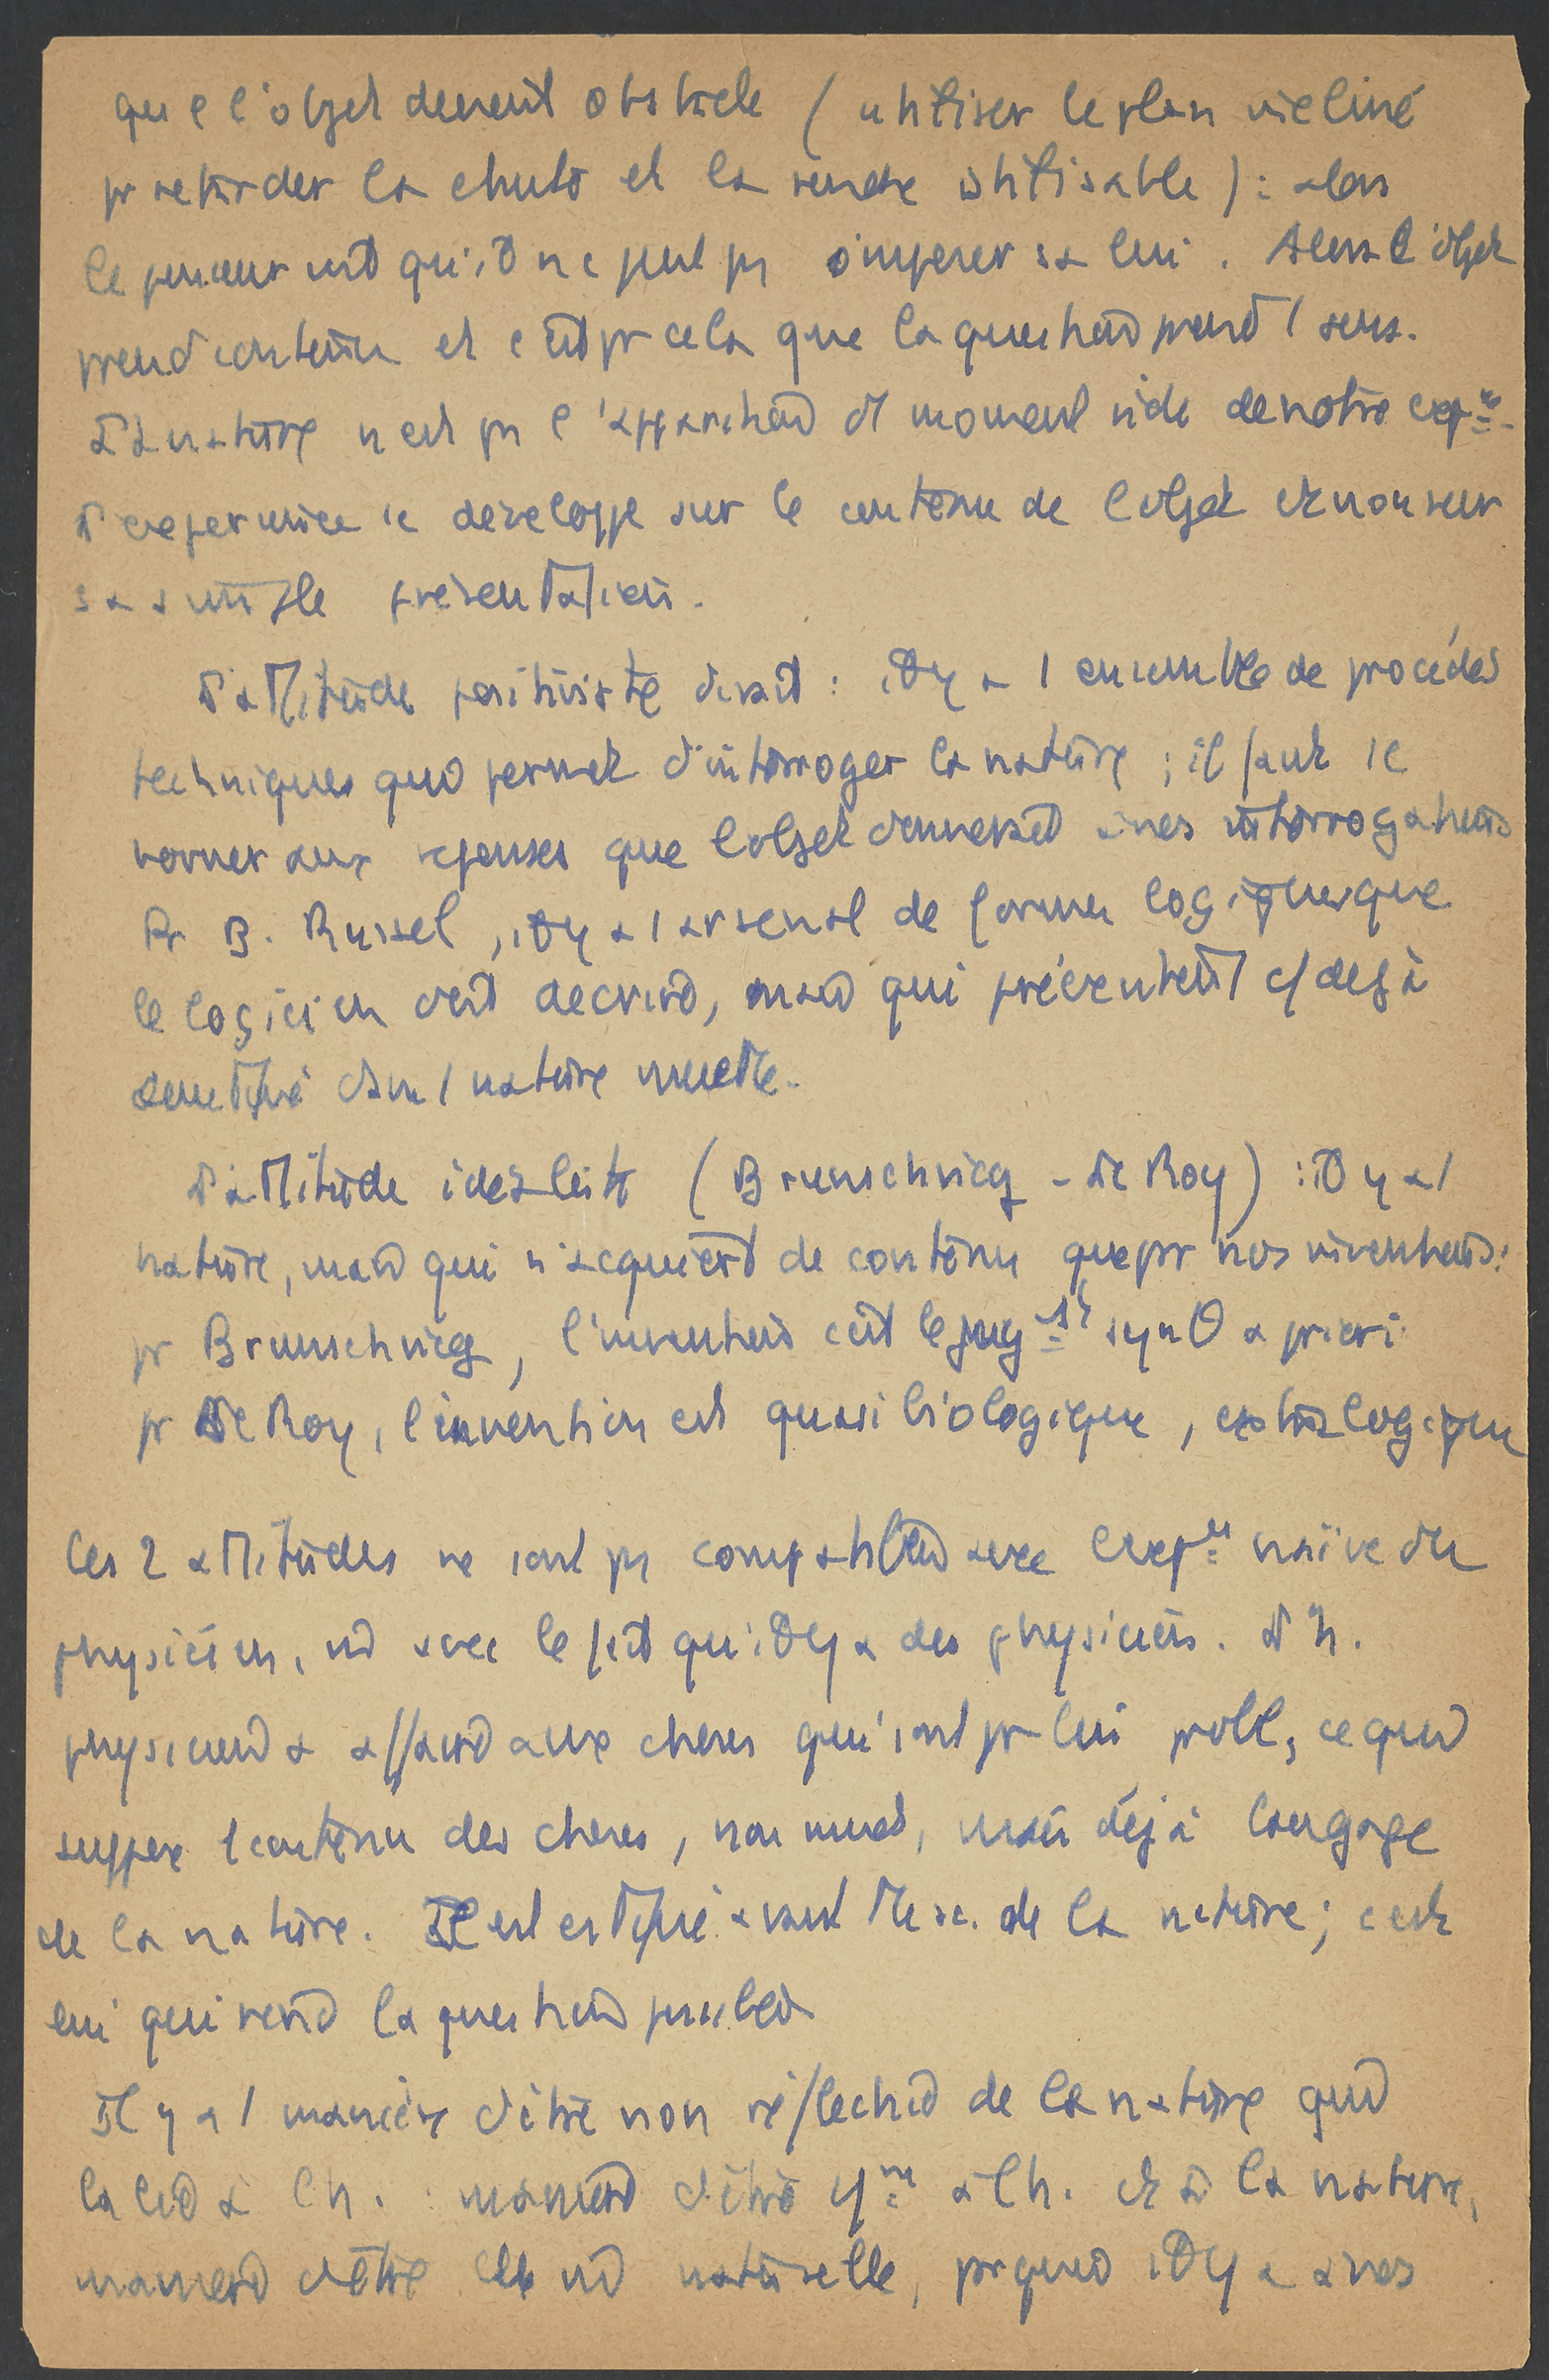 que l'objet devient obstacle (utiliser le plan incliné
pr retarder la chute et la rendre utilisable) : alors
le penseur voit qu'il ne peut ps s'imposer à lui. Alors l'objet
prend contenu et c'est pr cela que la question prend 1 sens.
La nature n'est ps l'apparition d'1 moment vide de notre expce.
L'expérience se développe sur le contenu de l'objet et non sur
sa simple présentation.
L'attitude positiviste disait : il y a 1 ensemble de procédés
techniques qui permet d'interroger la nature ; il faut se
borner aux réponses que l'objet donnerait à nos interrogations
Pr B. Russel, il y a 1 arsenal de formes logiques que
le logicien doit décrire, mais qui préexistent c/ déjà
dans 1 nature muette.
L'attitude idéaliste (Brunschvicg - Le Roy) : il y a 1
nature, mais qui n'acquiert de contenu que par nos inventions :
pr Brunschvicg, l'invention c'est le jugt synθ a priori
pr Le Roy, l'invention est quasi biologique, extralogique
Ces 2 attitudes ne sont ps compatibles avec l'expce naïve du
physicien, ni avec le fait qu'il y a des physiciens. L'h.
physicien a affaire aux choses qui sont pr lui probl, ce qui
suppose 1 contenu des choses, non muet, mais déjà langage
de la nature. Il est avant tte sc. de la nature ; c'est
lui qui rend la question possible
Il y a 1 manière d'être non réfléchie de la nature qui
la lie à l'h. : manière d'être à l'h. et à la nature,
manière d'être naturelle, pr quoi il y a à nos